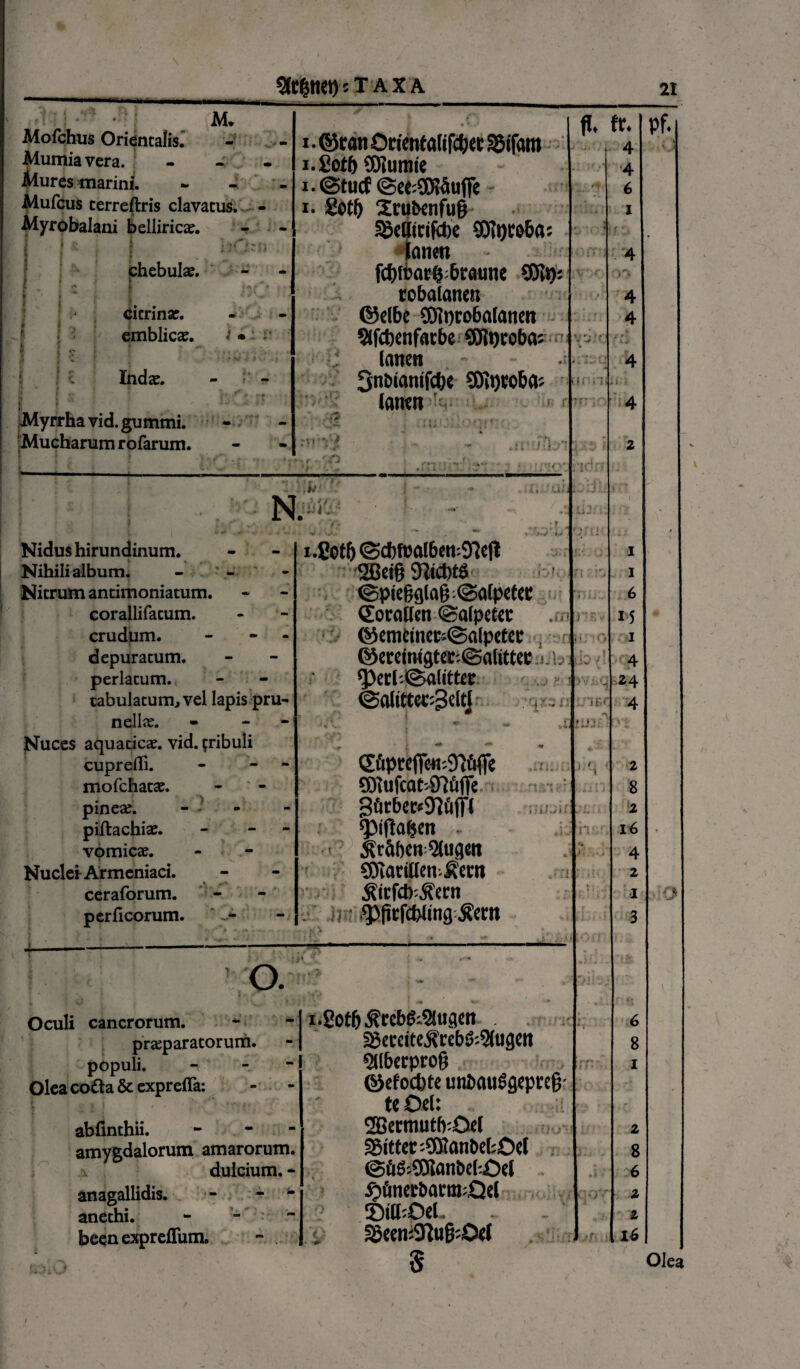 Artzney: TAXA 21
M. fl. kr. pf.
Moſchus Orientalis. - - 1. Gran Orientaliſcher Biſam 4
Mumia vera. - - - 1. Loth Mumie 4
Mures marini. - - - 1. Stuck See-Mäuſſe 6
Muſcus terreſtris clavatus. - 1. Loth Trudenfuß 1
Myrobalani belliricæ. - - Belliriſche Myroba-
lanen 4
chebulæ. - - ſchwartz-braune My-
robalanen 4
citrinæ. - - Gelbe Myrobalanen 4
emblicæ. - - Aſchenfarbe Myroba-
lanen 4
Indæ. - - Indianiſche Myroba-
lanen 4
Myrrha vid. gummi. - -
Mucharum roſarum. - - 2
N.
Nidus hirundinum. - - 1. Loth Schwalben-Neſt 1
Nihili album. - - - Weiß Nichts 1
Nitrum antimoniatum. - - Spießglaß-Salpeter 6
corallifatum. - - Corallen Salpeter 15
crudum. - - - Gemeiner-Salpeter 1
depuratum. - - Gereinigter-Salitter 4
perlatum. - - Perl-Salitter 24
tabulatum, vel lapis pru- Salitter-Zeltl 4
nellæ. - - -
Nuces aquaticæ. vid. tribuli
cupreſſi. - - - Cüpreſſen-Nüſſe 2
moſchatæ. - - Muſcat-Nüſſe 8
pineæ. - - - Zürber-Nüſſl 2
piſtachiæ. - - - Piſtatzen 16
vomicæ. - - Krähen-Augen 4
Nuclei Armeniaci. - - Marillen-Kern 2
ceraſorum. - - Kirſch-Kern 1
perſicorum. - - Pfirſchling-Kern 3
O.
Oculi cancrorum. - - 1. Loth Krebs-Augen 6
præparatorum. - Bereite Krebs-Augen 8
populi. - - - Alberproß 1
Olea cocta & expreſſa: - - Gekochte und ausgepreß-
te Oel:
abſinthii. - - - Wermuth-Oel 2
amygdalorum amarorum. Bitter-Mandel-Oel 8
dulcium. - Süs-Mandel-Oel 6
anagallidis. - - - Hünerdarm-Oel 2
anethi. - - - Dill-Oel 2
been expreſſum. - Been-Nuß-Oel 16
F Olea